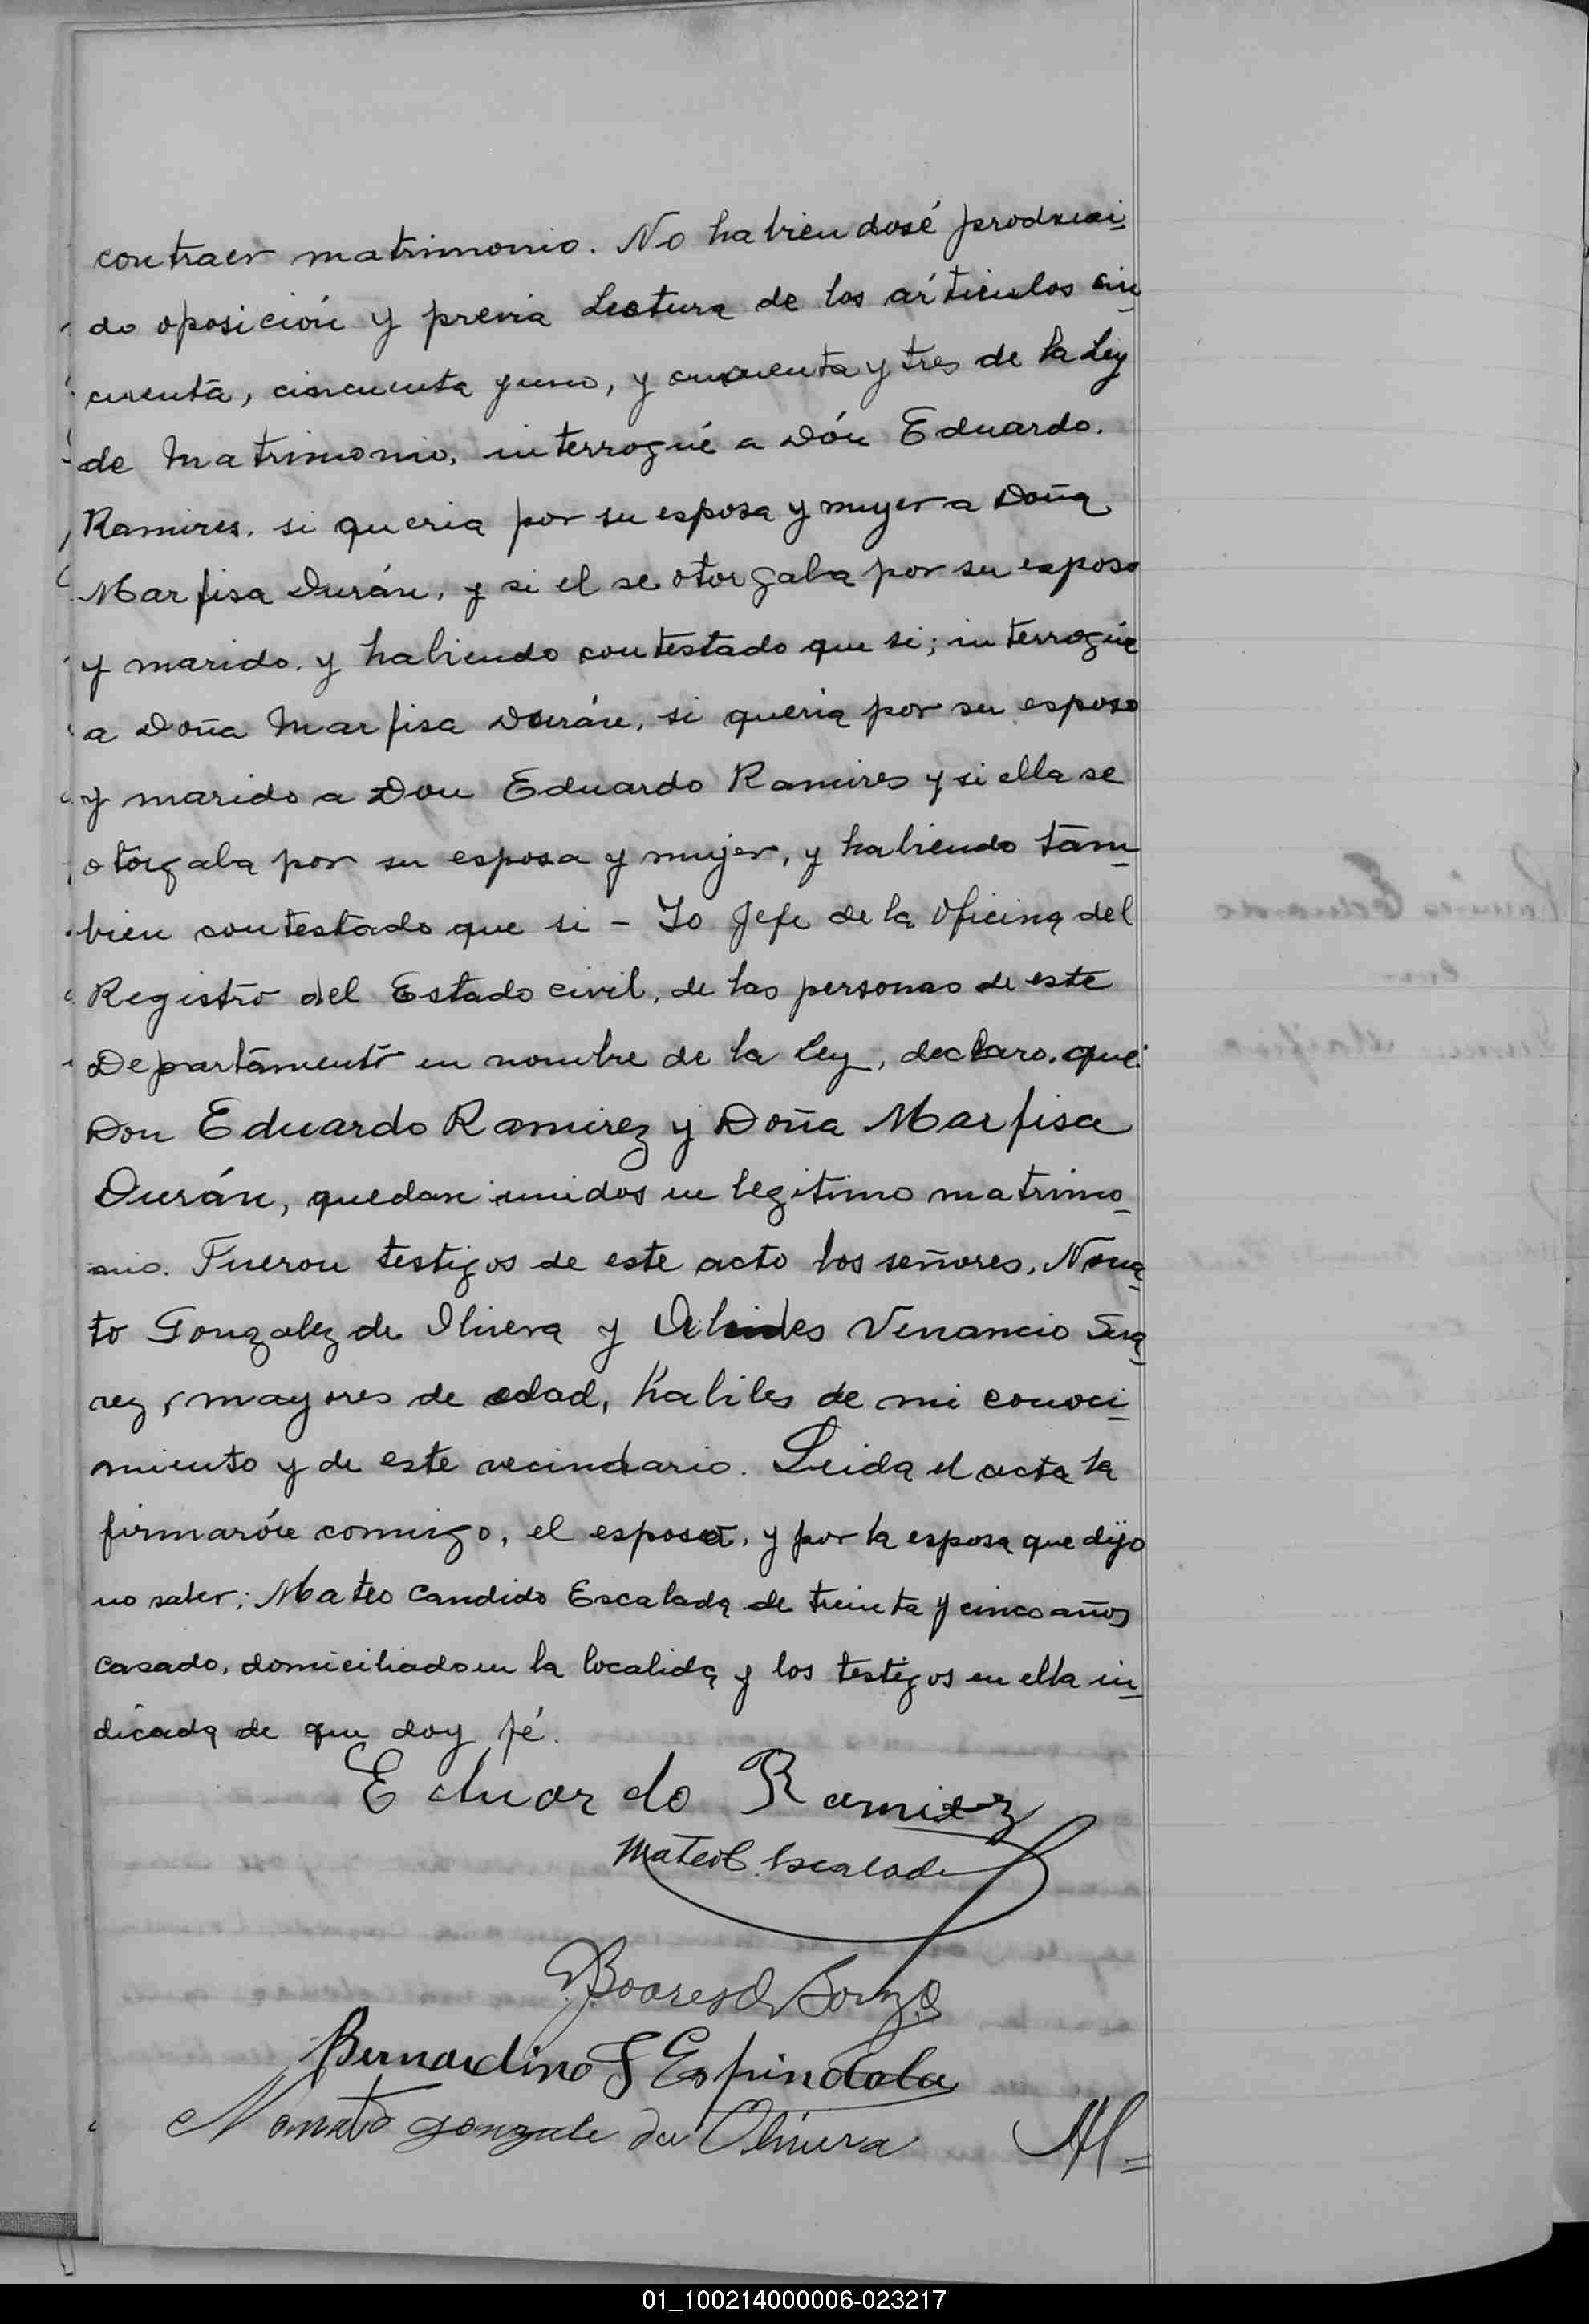 contraer matrimonio. No habiendosé produci-
do oposición y previa Lectura de los artículos cin-
cuenta, cincuenta y uno, y cincuenta y tres de la Ley
de Matrimonio, interrogué a Dón Eduardo.
Ramires. si queria por su esposa y mujer a Doña
Marfisa Durán, y si el se otorgaba por su esposo
y marido. y habiendo contestado que si; interrogué
a Doña Marfisa Durán, si queria por su esposo
y marido a Don Eduardo Ramires y si ella se
otorgaba por su esposa y mujer, y habiendo tam-
bien contestado que si - Yo Jefe de la Oficina del
Registro del Estado civil, de las personas de este
Departamento en nombre de la ley, declaro, que:
Don Eduardo Ramirez y Doña Marfisa
Durán, quedan unidos en legitimo matrimo-
nio. Fueron testigos de este acto los señores, Nona-
to Gonzalez de Olivera y Venancio Sua-
rez, mayores de edad, habiles de mi conoci-
miento y de este vecindario. Leida el acta la
firmarón conmigo, el esposo, y por la esposa que dijo
no saber; Mateo Candido Escalada de treinta y cinco años
casado, domiciliado en la localida y los testigos en ella in-
dicada de que doy fé.
Eduardo Ramirez
Mateo C. Escalada
Bernardino S Espindola
Nonato gonzale de Olivera
01_100214000006-023217